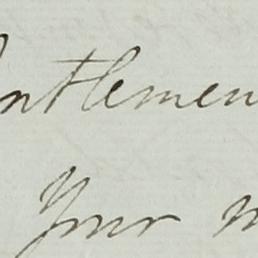 entlemen
Your